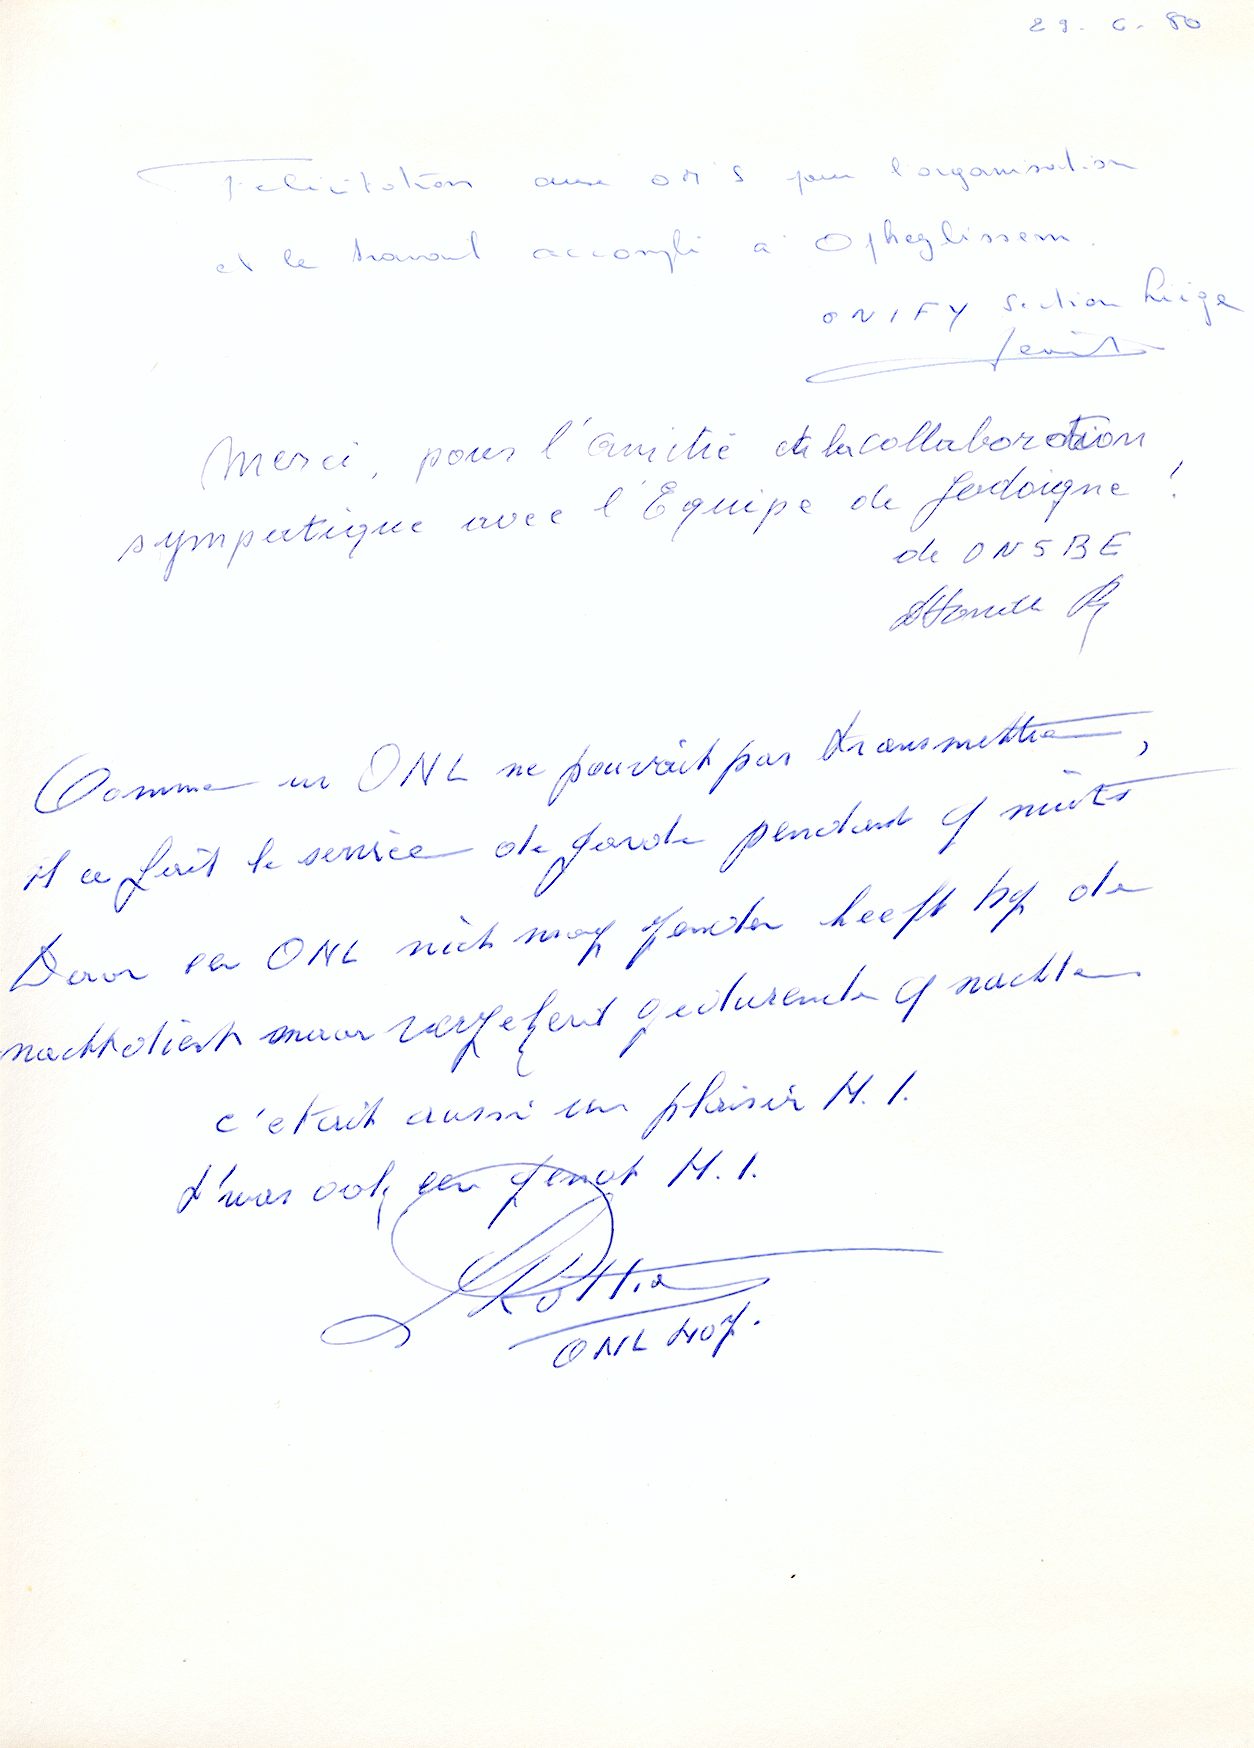 29. 6. 80
Felicitations aux OM'S pour l'organisation
et le travail accompli a Opheylissem.
ON1FY Section Liège
Merci, pour l'amitié et la collaboration
sympatique avec l'Equipe de Jodoigne !
de ON5BE
Comme un ONL ne pouvait pas transmettre,
il a fait le service de garde pendant 9 nuits
Daar een ONL niet mag zenden heeft hij de
nachtdienst maar verzekerd gedurende 9 nachten
c'etait aussi un plaisir H.I.
t'was ook een genot H.I.
ONL 407.